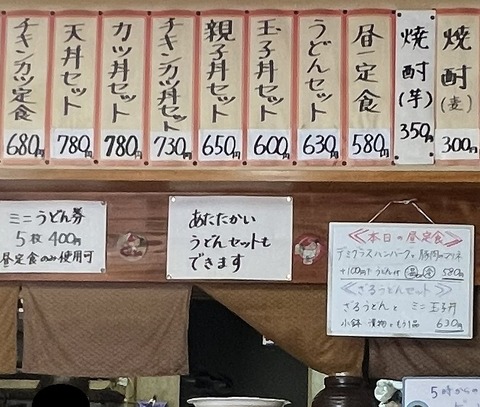 チキンカツ定食 680円
天丼セット 780円
カツ丼セット 780円
チキンカツ丼セット 730円
親子丼セット 650円
玉子丼セット 600円
うどんセット 630円
昼定食 580円
焼酎(芋) 350円
焼酎(麦) 300円
ミニうどん券
5枚 400円
昼定食のみ使用可
あたたかい
うどんセットも
できます
≪本日の昼定食≫
デミグラスハンバーグと豚肉のマリネ
+100円でうどん付 580円
≪ざるうどんセット≫
ざるうどんと ミニ玉子丼
小鉢 漬物 もう1品
630円
5時からの